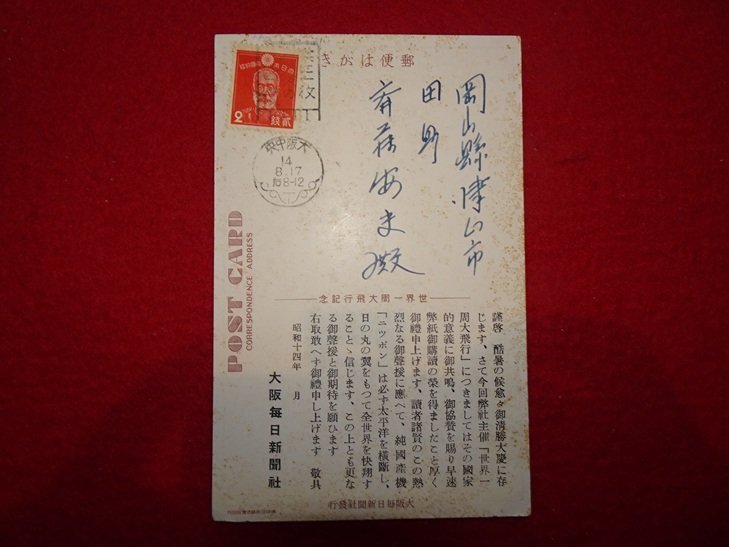 郵便はがき
貳錢
大阪中央
14
8.17
后8-12
岡山縣津山市
田町
斉藤安夫殿
POST CARD
CORRESPONDENCE ADDRESS
世界一周大飛行記念
謹啓 酷暑の候愈々御淸勝大慶に存
じます、さて今回弊社主催「世界一
周大飛行」につきましてはその國家
的意義に御共鳴、御協贊を賜り早速
弊紙御購讀の榮を得ましたこと厚く
御禮申上げます、讀者諸賢のこの熱
烈なる御聲援に應へて、純國產機
「ニッポン」は必ず太平洋を橫斷し、
日の丸の翼をもつて全世界を快翔す
ることゝ信じます、この上とも更な
る御聲援と御期待を願ひます
右取敢へず御禮申し上げます 敬具
昭和十四年 月
大阪每日新聞社
大阪每日新聞社發行